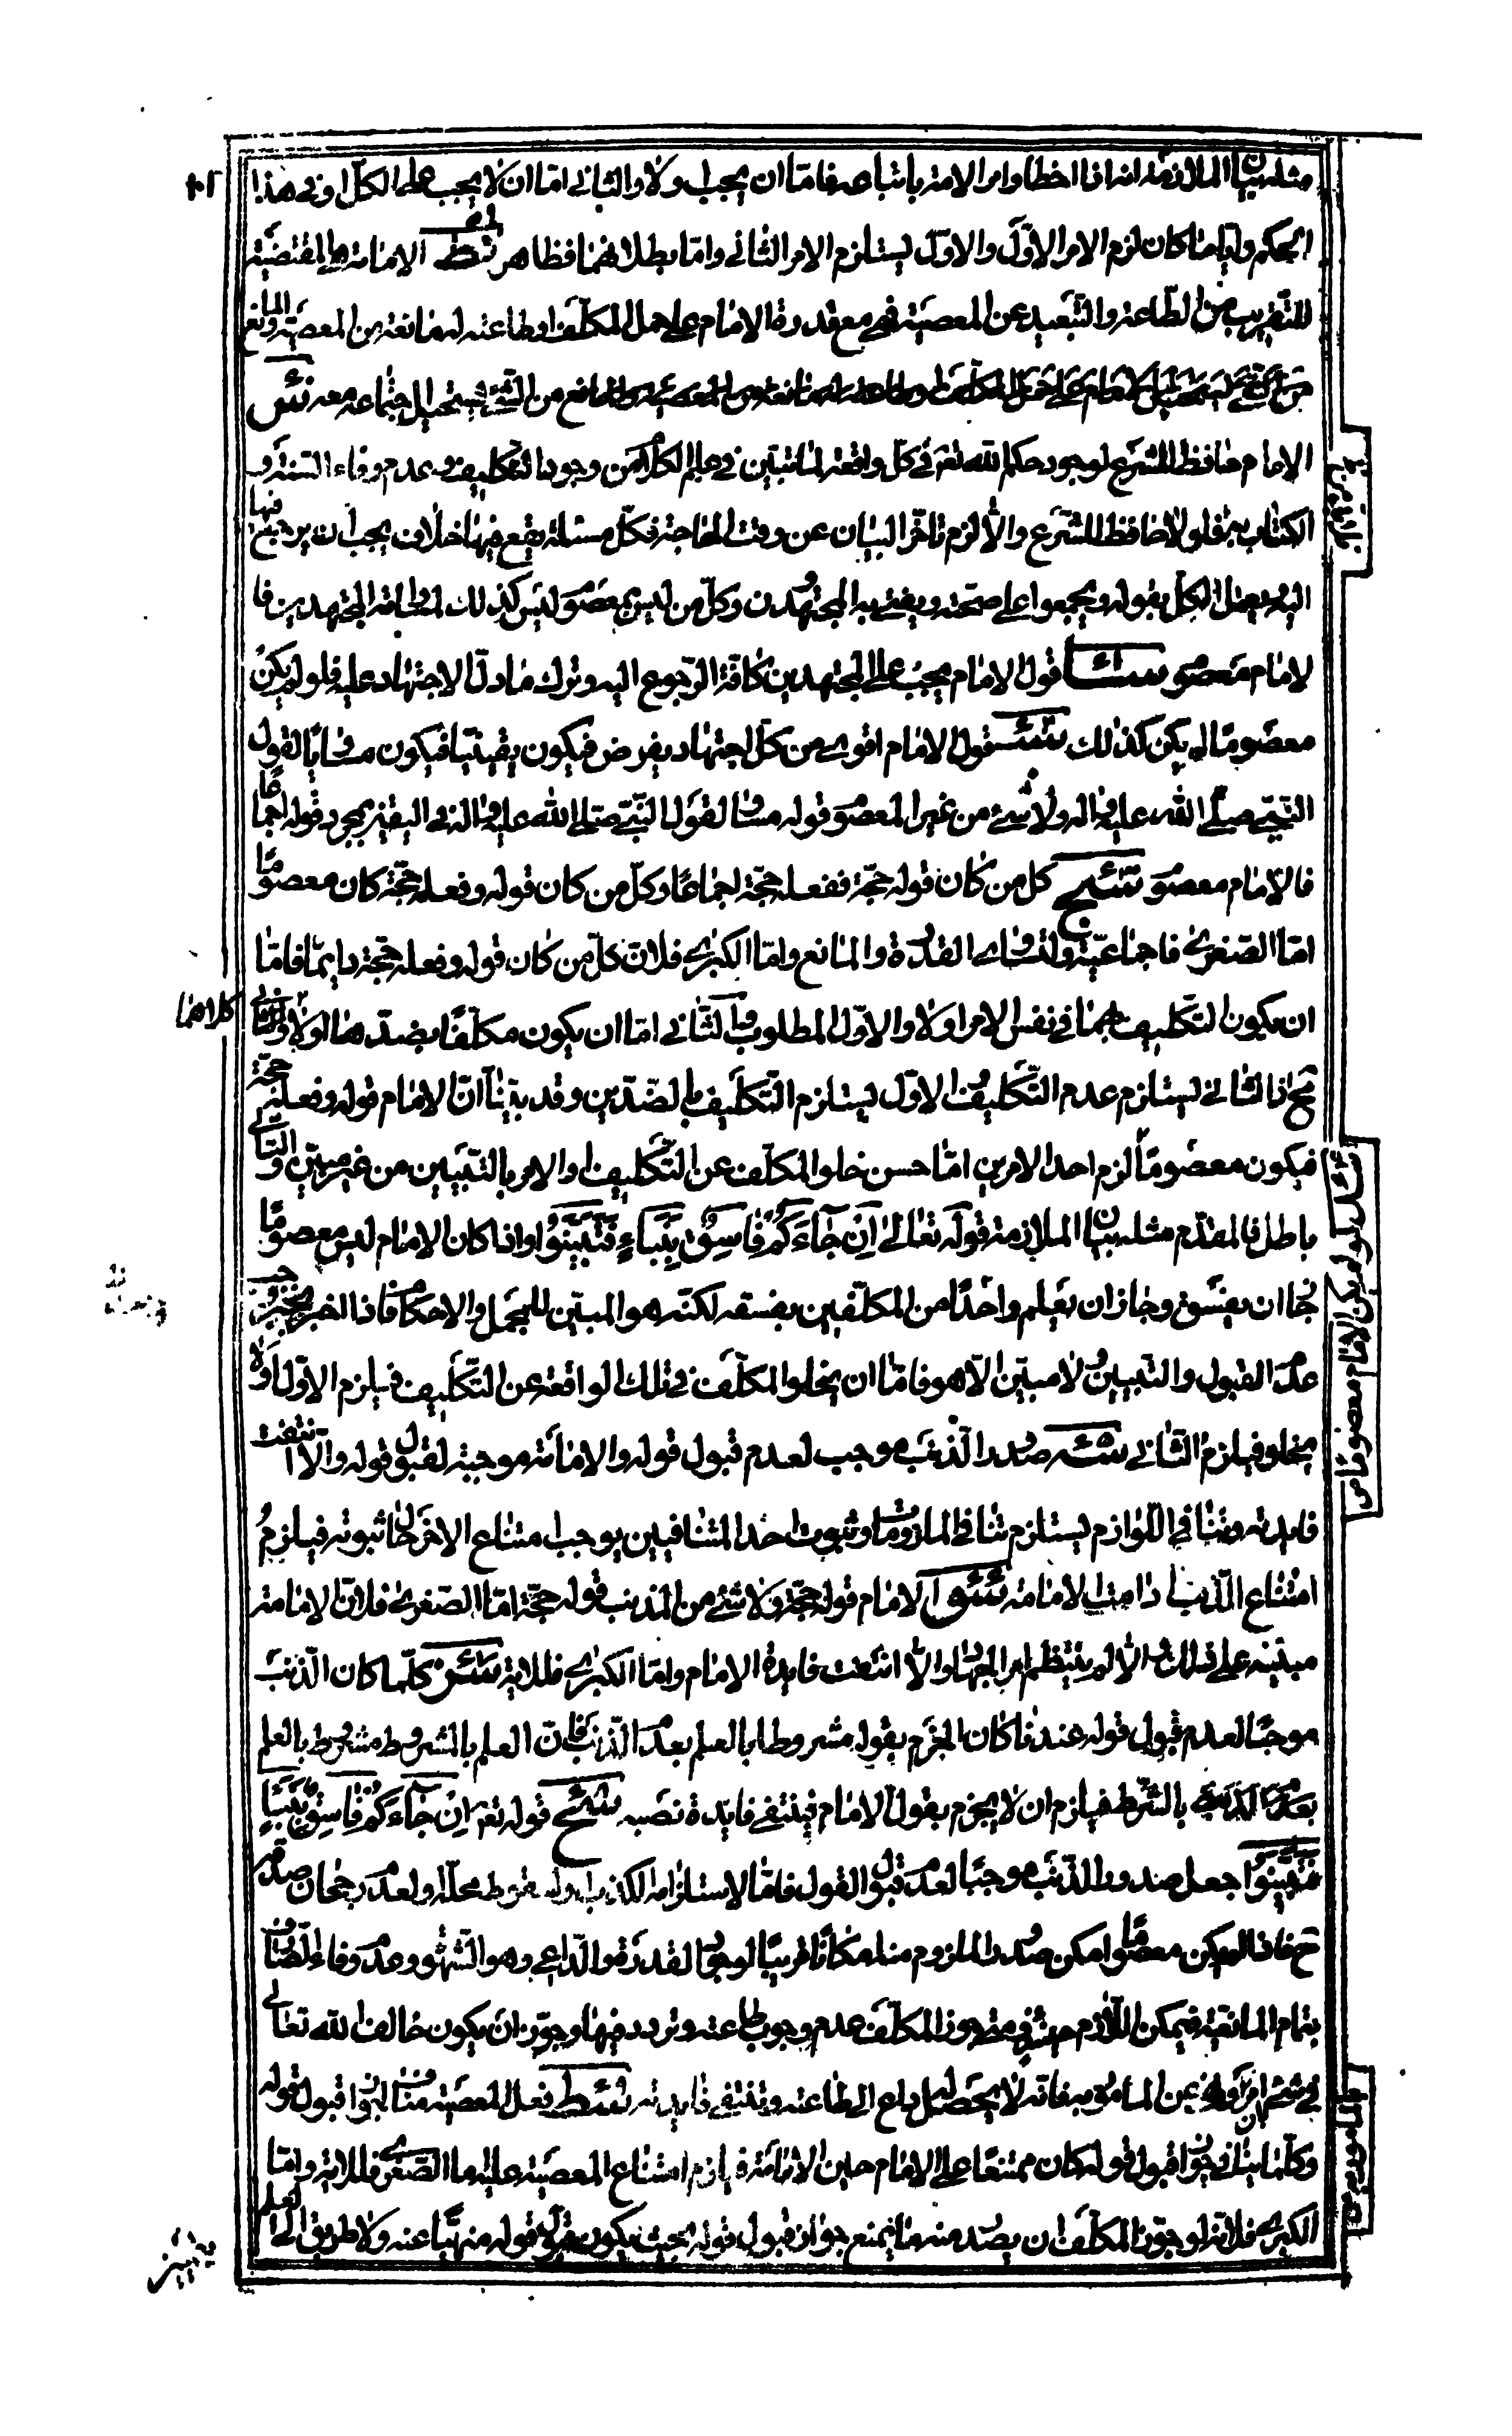 مثله بيان الملازمة انه اذا اخطا وامر الامة باتباعه فامّا ان يجب اولا والثانى امّا ان لا يجب على الكلّ او فى هذا
الحكم وايّاما كان لزم الامر الاوّل والاوّل يستلزم الامر الثانى وامّا بطلانهما فظاهر الامامة هى المقتضية
للتقريب من الطّاعة والتّبعيد عن المعصية فهى مع قدرة الامام على حمل المكلّف وطاعته له مانعة من المعصية والمانع
من الشّئ يستحيل اجتماعه معه
الامام حافظ للشّرع لوجود حكم الله تعر فى كلّ واقعة لما تبيّن فى علم الكلام من وجود التكليف وعدم وفاء السّنة و
الكتاب به فلولا حافظ للشّرع والّا لزم تاخّر البيان عن وقت الحاجة فكلّ مسئلة يقع فيها خلاف يجب ان يرجع فيها
اليه ويعمل الكلّ بقوله ويجمعوا على صحّته ويفتى به المجتهدون وكلّ من ليس بمعصوم ليس كذلك المجتهدين فا
لامام معصوم قول الامام يجب على المجتهدين كافّة الرّجوع اليه وترك ما دلّ الاجتهاد عليه فلو لم يكن
معصومًا لم يكن كذلك قول الامام اقوى من كلّ اجتهاد يفرض فيكون يقينيّا فيكون مساويًا لقول
النّبىّ صلّى الله عليه واله ولا شئ من غير المعصوم قوله مساو لقول النّبىّ صلّى الله عليه واله فى اليقين بمجرد قوله اجماعًا
فالامام معصوم كل من كان قوله حجّة ففعله حجّة اجماعًا وكلّ من كان قوله وفعله حجّة كان معصومًا
امّا الصّغرى فاجماعيّة ولتساوى القدرة والمانع وامّا الكبرى فلانّ كلّ من كان قوله وفعله حجّة دايمًا فامّا
ان يكون التّكليف بهما فى نفس الامر اولا والاوّل المطلوب والثّانى امّا ان يكون مكلّفًا بضدّهما اولا
كلاهما
مح اذ الثانى يستلزم عدم التّكليف والاوّل يستلزم التّكليف بالضّدّين وقد بيّنّا انّ الامام قوله وفعله حجّة
فيكون معصومًا لزم احد الامرين امّا حسن خلو المكلّف عن التّكليف او الامر بالتبيين من غير مبيّن والتّالى
باطل فالمقدّم مثله بيان الملازمة قوله تعالى اِنْ جَآءَكُمْ فَاسِقٌ بِنَبَاءٍ فَتَبَيَّنُوا واذا كان الامام ليس معصومًا
جاز ان يفسق وجاز ان يعلم واحدًا من المكلّفين بفسقه لكنّه هو المبيّن للمجمل والاحكام فاذا اخبر بخبر وجب
عدم القبول والتّبيين ولا مبيّن الّا هو فامّا ان يخلو المكلّف فى تلك الواقعة عن التّكليف فيلزم الاوّل او لا
يخلو فيلزم الثّانى صدور الذّنب موجب لعدم قبول قوله والامامة موجبة لقبول قوله والّا انتفت
فايدته وتنافى اللّوازم يستلزم تنافى الملزومات وثبوت احد المتنافيين يوجب امتناع الاخر حال ثبوته فيلزم
امتناع الذّنب مادامت الامامة الامام قوله حجّة ولا شئ من المذنب قوله حجّة امّا الصّغرى فلانّ الامامة
مبتنية على ذلك والّا لم ينتظم امر الجهاد والّا انتفت فايدة الامام وامّا الكبرى فللاية كلّما كان الذّنب
موجبًا لعدم قبول قوله عندنا كان الجزم بقوله مشروطا بالعلم بعدم الذّنب فانّ العلم بالمشروط مشروط بالعلم
بالشّرط فيلزم ان لا يجزم بقول الامام فينتفى فايدة نصبه قوله تعر اِنْ جَآءَكُمْ فَاسِقٌ بِنَبَاءٍ
فَتَبَيَّنُوا جعل صدور الذّنب موجبًا لعدم قبول القول فامّا لاستلزامه الكذب او لسقوط محلّه ولعدم رجحان صدقه
مح فاذا لم يكن معصومًا امكن صدور الملزوم منه امكانًا قريبًا لوجود القدرة والدّاعى وهو الشّهوة وعدم وفاء الصّارف
بتمام المانعية فيمكن اللّازم المكلّف عدم وجوب طاعته وتردد فيها وجوّز ان يكون خالف الله تعالى
فى شئ عن المأمور به فانّه لا يحصل له داع الى طاعته وتنتفى فايدته فعل المعصية مناف لجواز قبول قوله
وكلّما ينافى جواز قبول قوله كان ممتنعًا على الامام حين الامامة فيلزم امتناع المعصية عليه امّا الصّغرى فللاية وامّا
الكبرى فلانّه لو جوّز المكلّف ان يصدر منه ما يمنع جواز قبول قوله بحيث يكون قبول قوله منهيًّا عنه ولا طريق الى العلم
لو لم يكن الامام معصوما